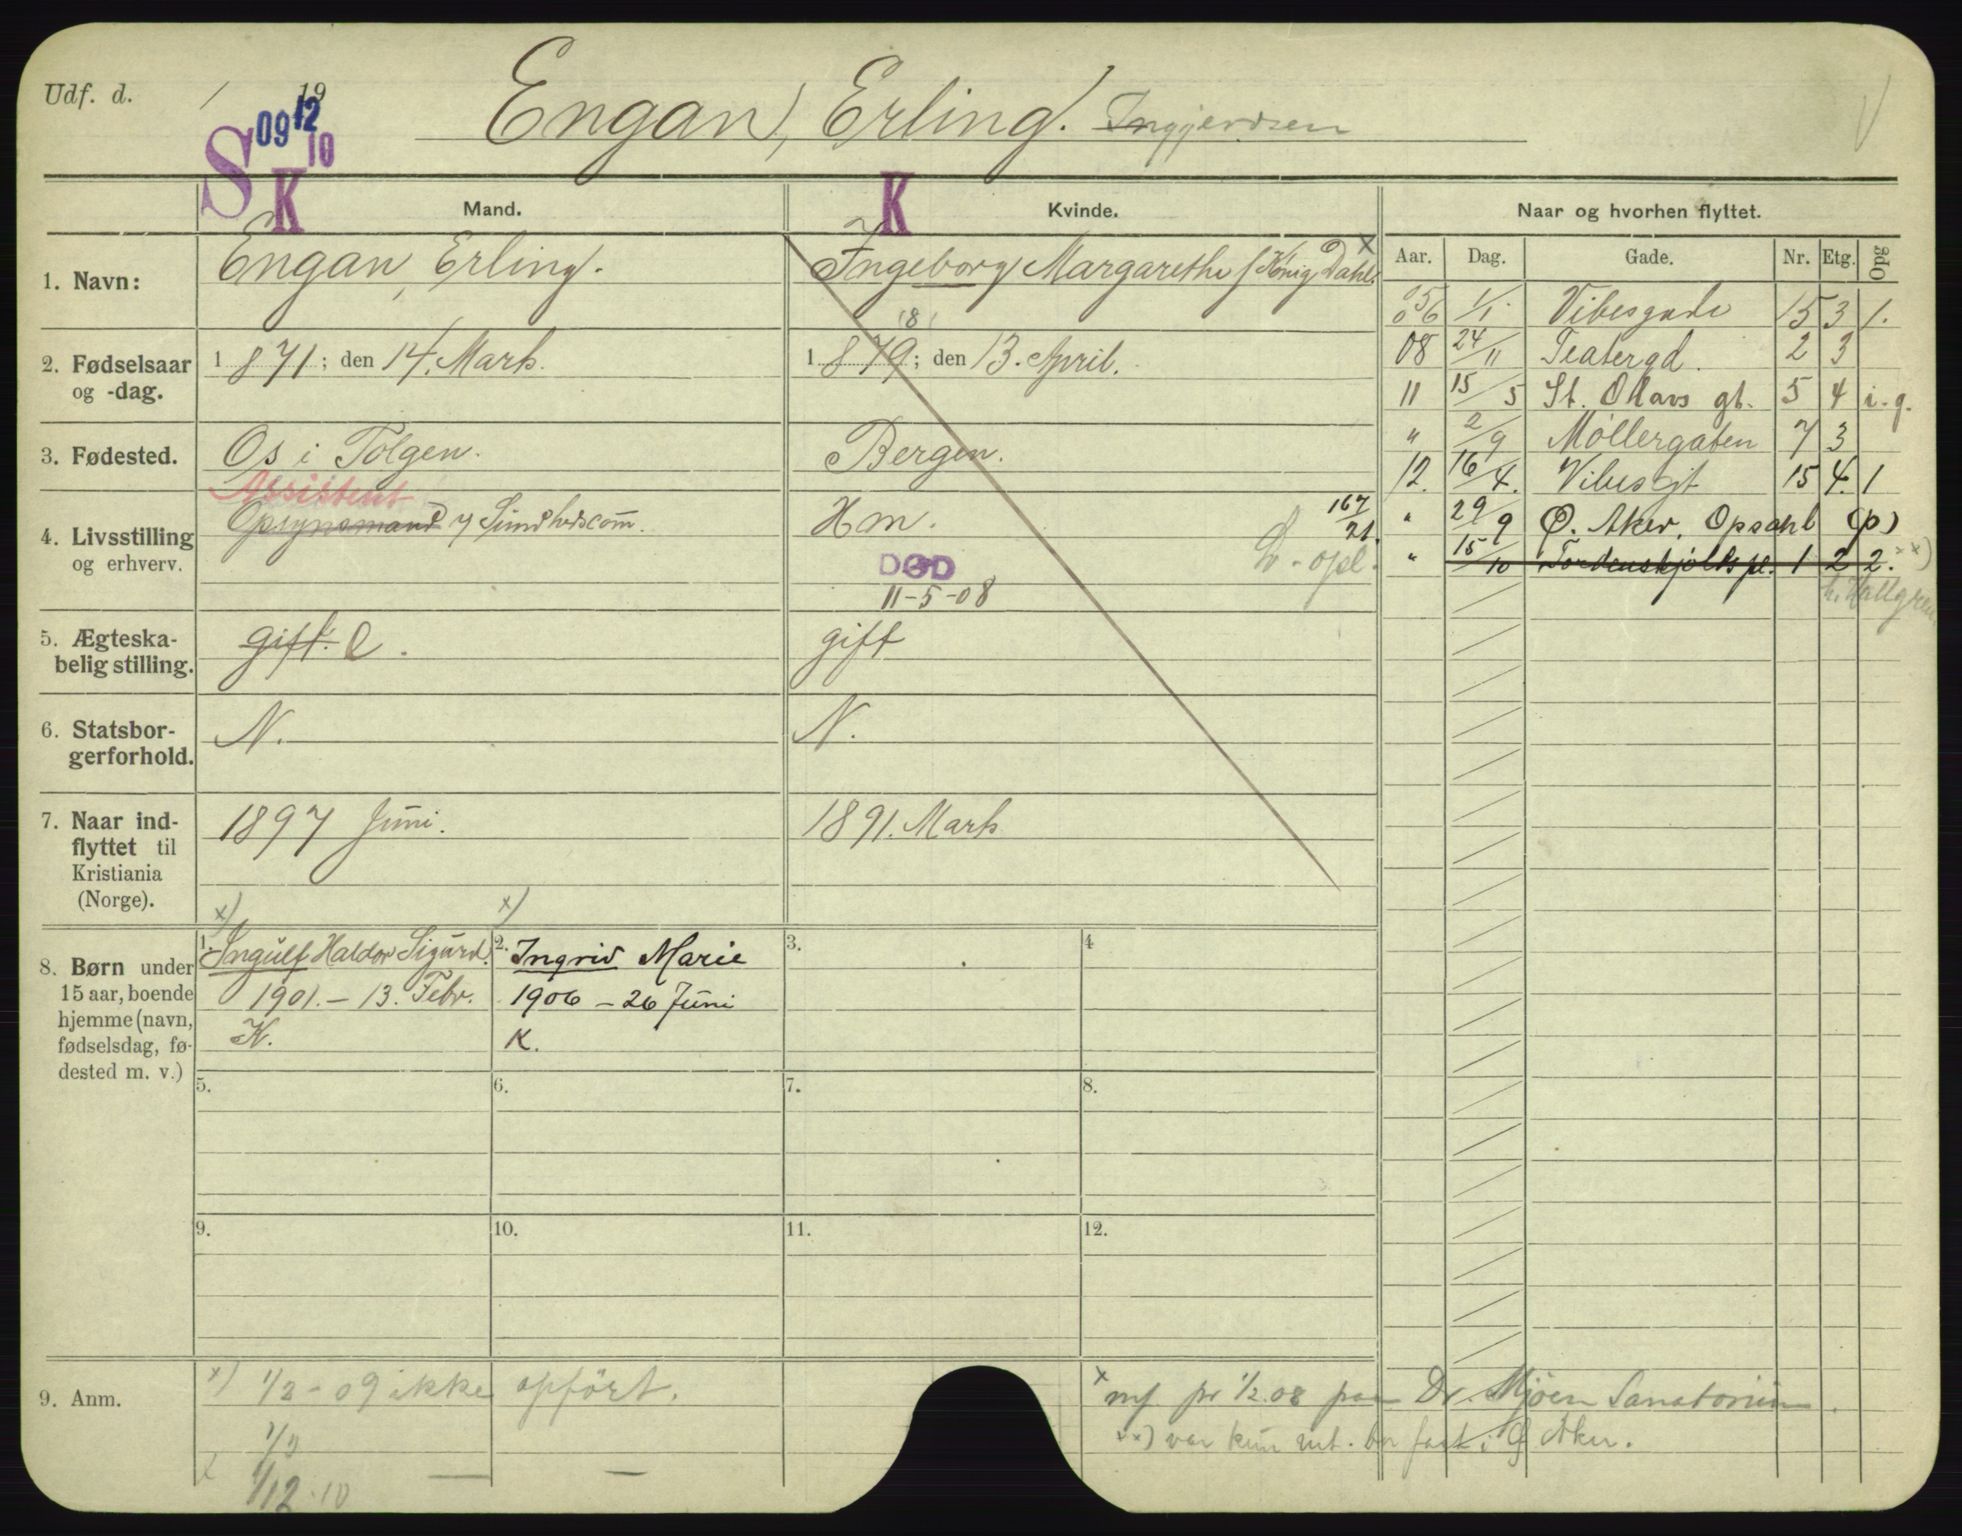 Udf. d. / 19
Engan, Erling. Ingjerdsen
S 09 12 10
K K
Mand. Kvinde. Naar og hvorhen flyttet.
Aar. Dag. Gade. Nr. Etg. Opg
1. Navn: Engan, Erling. Ingeborg Margarethe f. König Dahl. x
2. Fødselsaar og -dag. 1871; den 14. Marts. 1879; den 13. April.
(8)
3. Fødested. Os i Tolgen. Bergen.
Assistent
4. Livsstilling og erhverv. Opsynsmand v Sundhedscom. Hm.
DØD
11-5-08
167/21.
5. Ægteska-
belig stilling. gift. e. gift
6. Statsbor-
gerforhold. N. N.
7. Naar ind-
flyttet til
Kristiania
(Norge). 1897 Juni. 1891. Marts
056 1/1. Vibesgade 15 3 1.
08 24/11 Teatergd. 2 3
11 15/5 St. Olavs gt. 5 4 i.g.
" 2/9 Møllergaten 7 3
12. 16/4. Vibesgt 15 4. 1
" 29/9 Ø. Aker, Opsahl (p)
" 15/10 Tordenskjolds pl. 1 2 2. xx)
h. Hallgren
8. Børn under
15 aar, boende
hjemme (navn,
fødselsdag, fø-
dested m. v.)
x) x)
1. Ingulf Haldor Sigurd. 2. Ingrid Marie 3. 4
1901. - 13. Febr. 1906 - 26 Juni
K. K.
5. 6. 7. 8.
9. 10. 11. 12.
9. Anm. x) 1/2 - 09 ikke opført.
1/12 - 10
x mf pr 1/2.08 paa Dr. Mjøen Sanatorium.
xx) var kun mt. bor fast i Ø Aker.